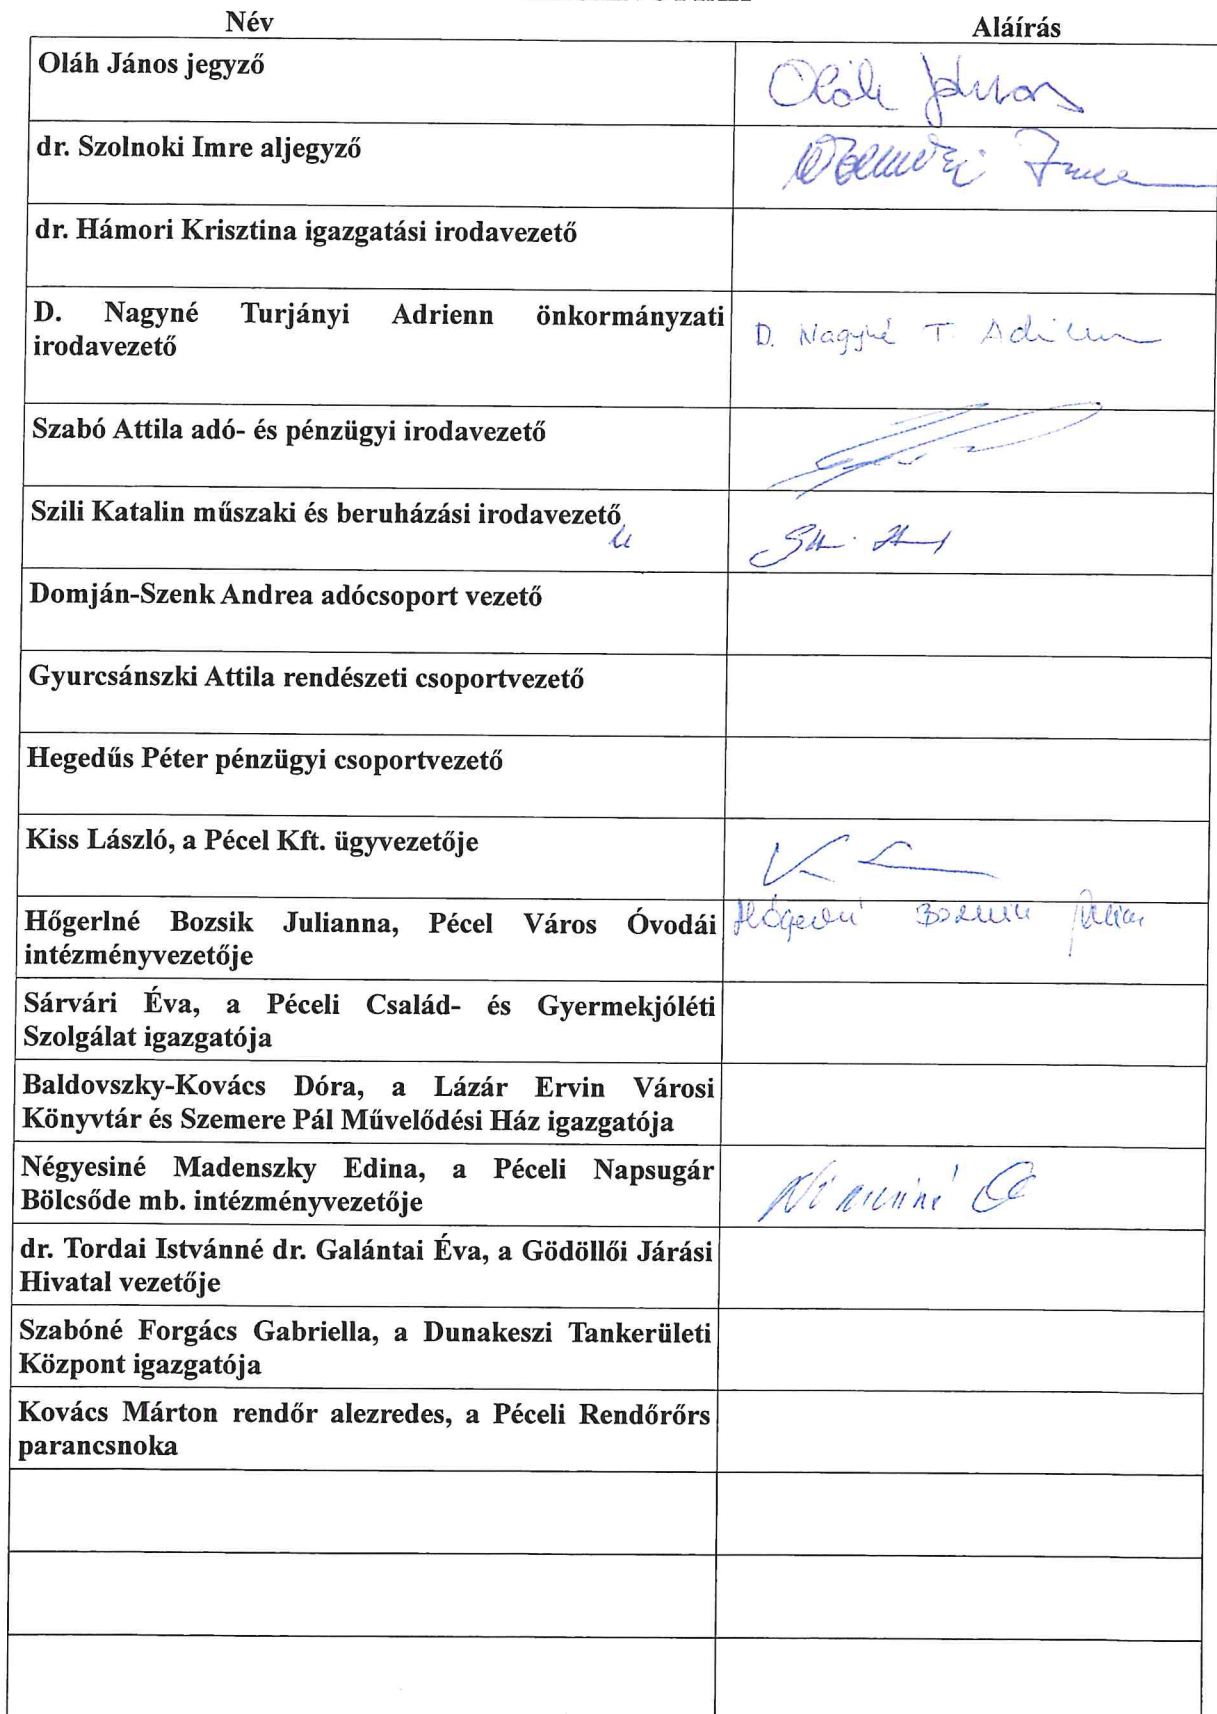 Név Aláírás
Oláh János jegyző
Oláh János
dr. Szolnoki Imre aljegyző
Imre
dr. Hámori Krisztina igazgatási irodavezető
D. Nagyné Turjányi Adrienn önkormányzati
irodavezető
D. Nagyné T. Adrienn
Szabó Attila adó- és pénzügyi irodavezető
Szili Katalin műszaki és beruházási irodavezető
Domján-Szenk Andrea adócsoport vezető
Gyurcsánszki Attila rendészeti csoportvezető
Hegedűs Péter pénzügyi csoportvezető
Kiss László, a Pécel Kft. ügyvezetője
Hőgerlné Bozsik Julianna, Pécel Város Óvodái
intézményvezetője
Sárvári Éva, a Péceli Család- és Gyermekjóléti
Szolgálat igazgatója
Baldovszky-Kovács Dóra, a Lázár Ervin Városi
Könyvtár és Szemere Pál Művelődési Ház igazgatója
Négyesiné Madenszky Edina, a Péceli Napsugár
Bölcsőde mb. intézményvezetője
dr. Tordai Istvánné dr. Galántai Éva, a Gödöllői Járási
Hivatal vezetője
Szabóné Forgács Gabriella, a Dunakeszi Tankerületi
Központ igazgatója
Kovács Márton rendőr alezredes, a Péceli Rendőrőrs
parancsnoka